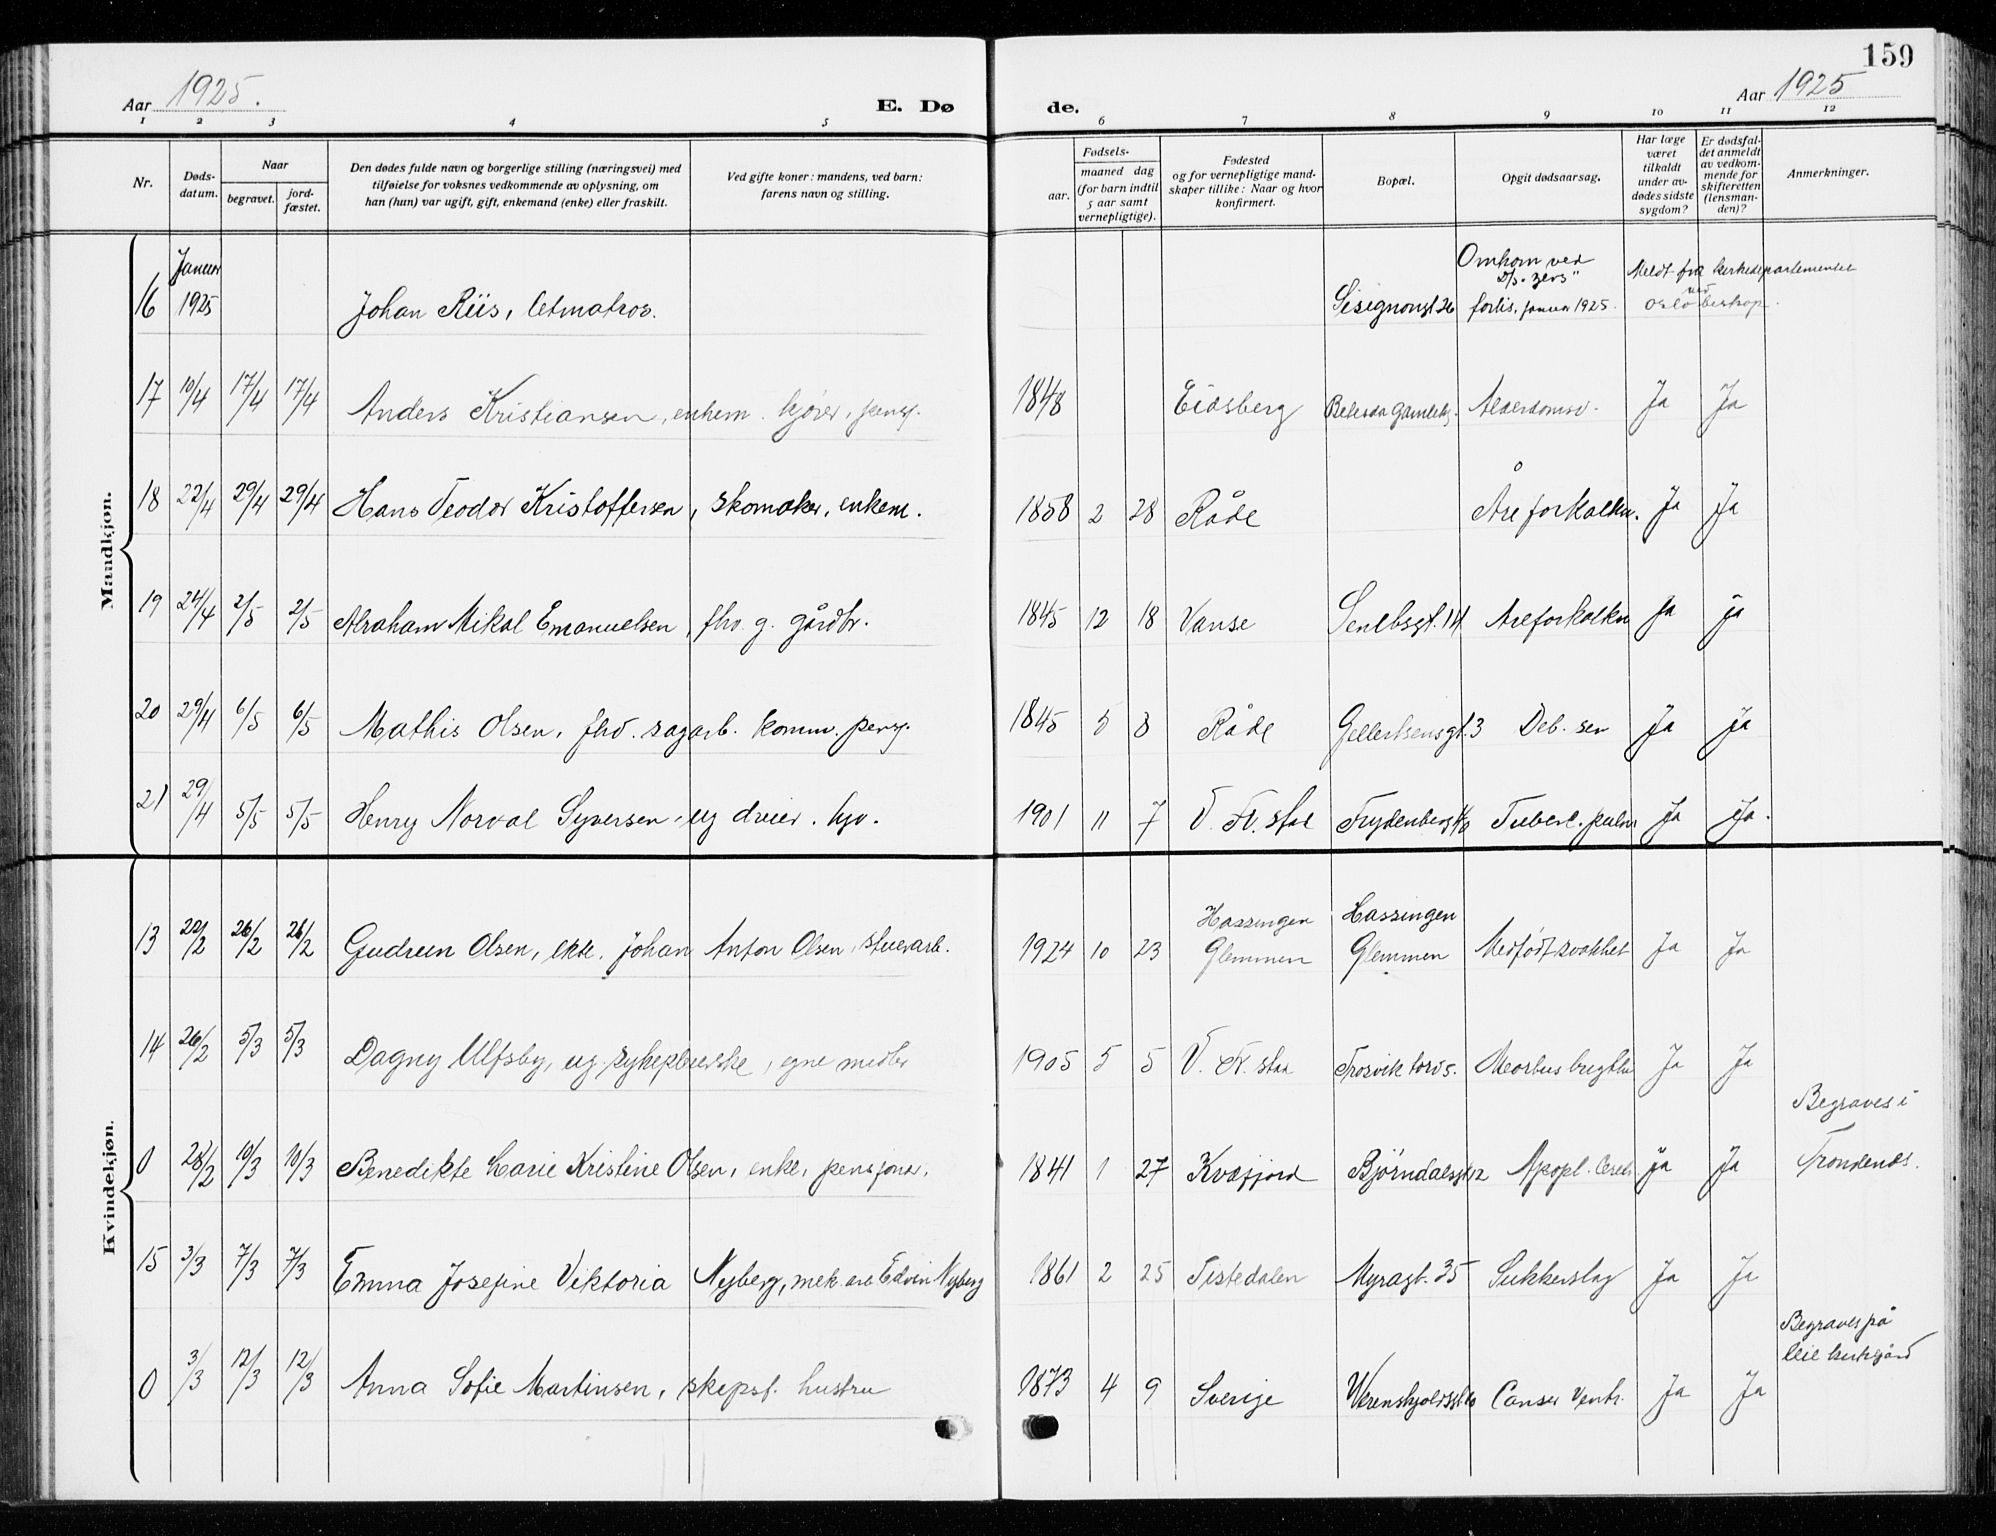 159
Aar 1925. E. Dø de. Aar 1925
1 2 3 4 5 6 7 8 9 10 11 12
Nr. Døds-datum. Naar begravet. jord-fæstet. Den dødes fulde navn og borgerlige stilling (næringsvei) med tilføielse for voksnes vedkommende av oplysning, om han (hun) var ugift, gift, enkemand (enke) eller fraskilt. Ved gifte koner: mandens, ved barn: farens navn og stilling. Fødsels- aar. maaned dag (for barn indtil 5 aar samt vernepligtige). Fødested og for vernepligtige mand-skaper tillike: Naar og hvor konfirmert. Bopæl. Opgit dødsaarsag. Har læge været tilkaldt under av-dødes sidste sygdom? Er dødsfal-det anmeldt av vedkom-mende for skifteretten (lensman-den)? Anmerkninger.
Mandkjøn.
16 Januar 1925 Johan Riis, letmatros. 26 Omkom ved D/s. forlis, januar 1925. Meldt fra kirkedepartementet ved Oslo biskop.
17 10/4 17/4 17/4 Anders Kristiansen, enkem. kjører, pensj. 1848 Eidsberg Betesda Gamleh. Alderdomsv. Ja Ja
18 22/4 29/4 29/4 Hans Teodor Kristoffersen, skomaker, enkem. 1858 2 28 Råde Åreforkalkn. Ja Ja
19 24/4 2/5 2/5 Abraham Mikal Emanuelsen, fhv. g. gårdbr. 1845 12 18 Vanse 14 Areforkalkn Ja ja
20 29/4 6/5 6/5 Mathis Olsen, fhv. sagarb. komm. pensj. 1845 5 8 Råde Gellertsensgt. 3 Deb. sen Ja Ja
21 29/4 5/5 5/5 Henry Norval Syversen, ug dreier. 1901 11 7 V. Fr.stad Tuberk. pulm Ja Ja.
Kvindekjøn.
13 22/2 26/2 26/2 Gudrun Olsen, ekte. Johan Anton Olsen, stuerarb. 1924 10 23 Hassingen Glemmen Hassingen Glemmen Medfødt svakhet Ja Ja
14 26/2 5/3 5/3 Dagny Ulfsby, ug. sykepleierske, egne midler 1905 5 5 V. Fr.stad Trosvik torv 5. Morbus brigthi Ja Ja
0 28/2 10/3 10/3 Benedikte Marie Kristine Olsen, enke, pensjoner. 1841 1 27 Kvæfjord Bjørndalsgt 12 Apopl. Cereb. Ja Ja Begraves i Trondenes.
15 3/3 7/3 7/3 Emma Josefine Viktoria Nyberg, mek. arb Edvin Nyberg 1861 2 25 Tistedalen Myragt. 35 Sukkerslag Ja Ja
0 3/3 12/3 12/3 Anna Sofie Martinsen, skepsf. hustru 1873 4 9 Sverige Canser Ventr. Ja Ja Begraves på Leie kirkegård